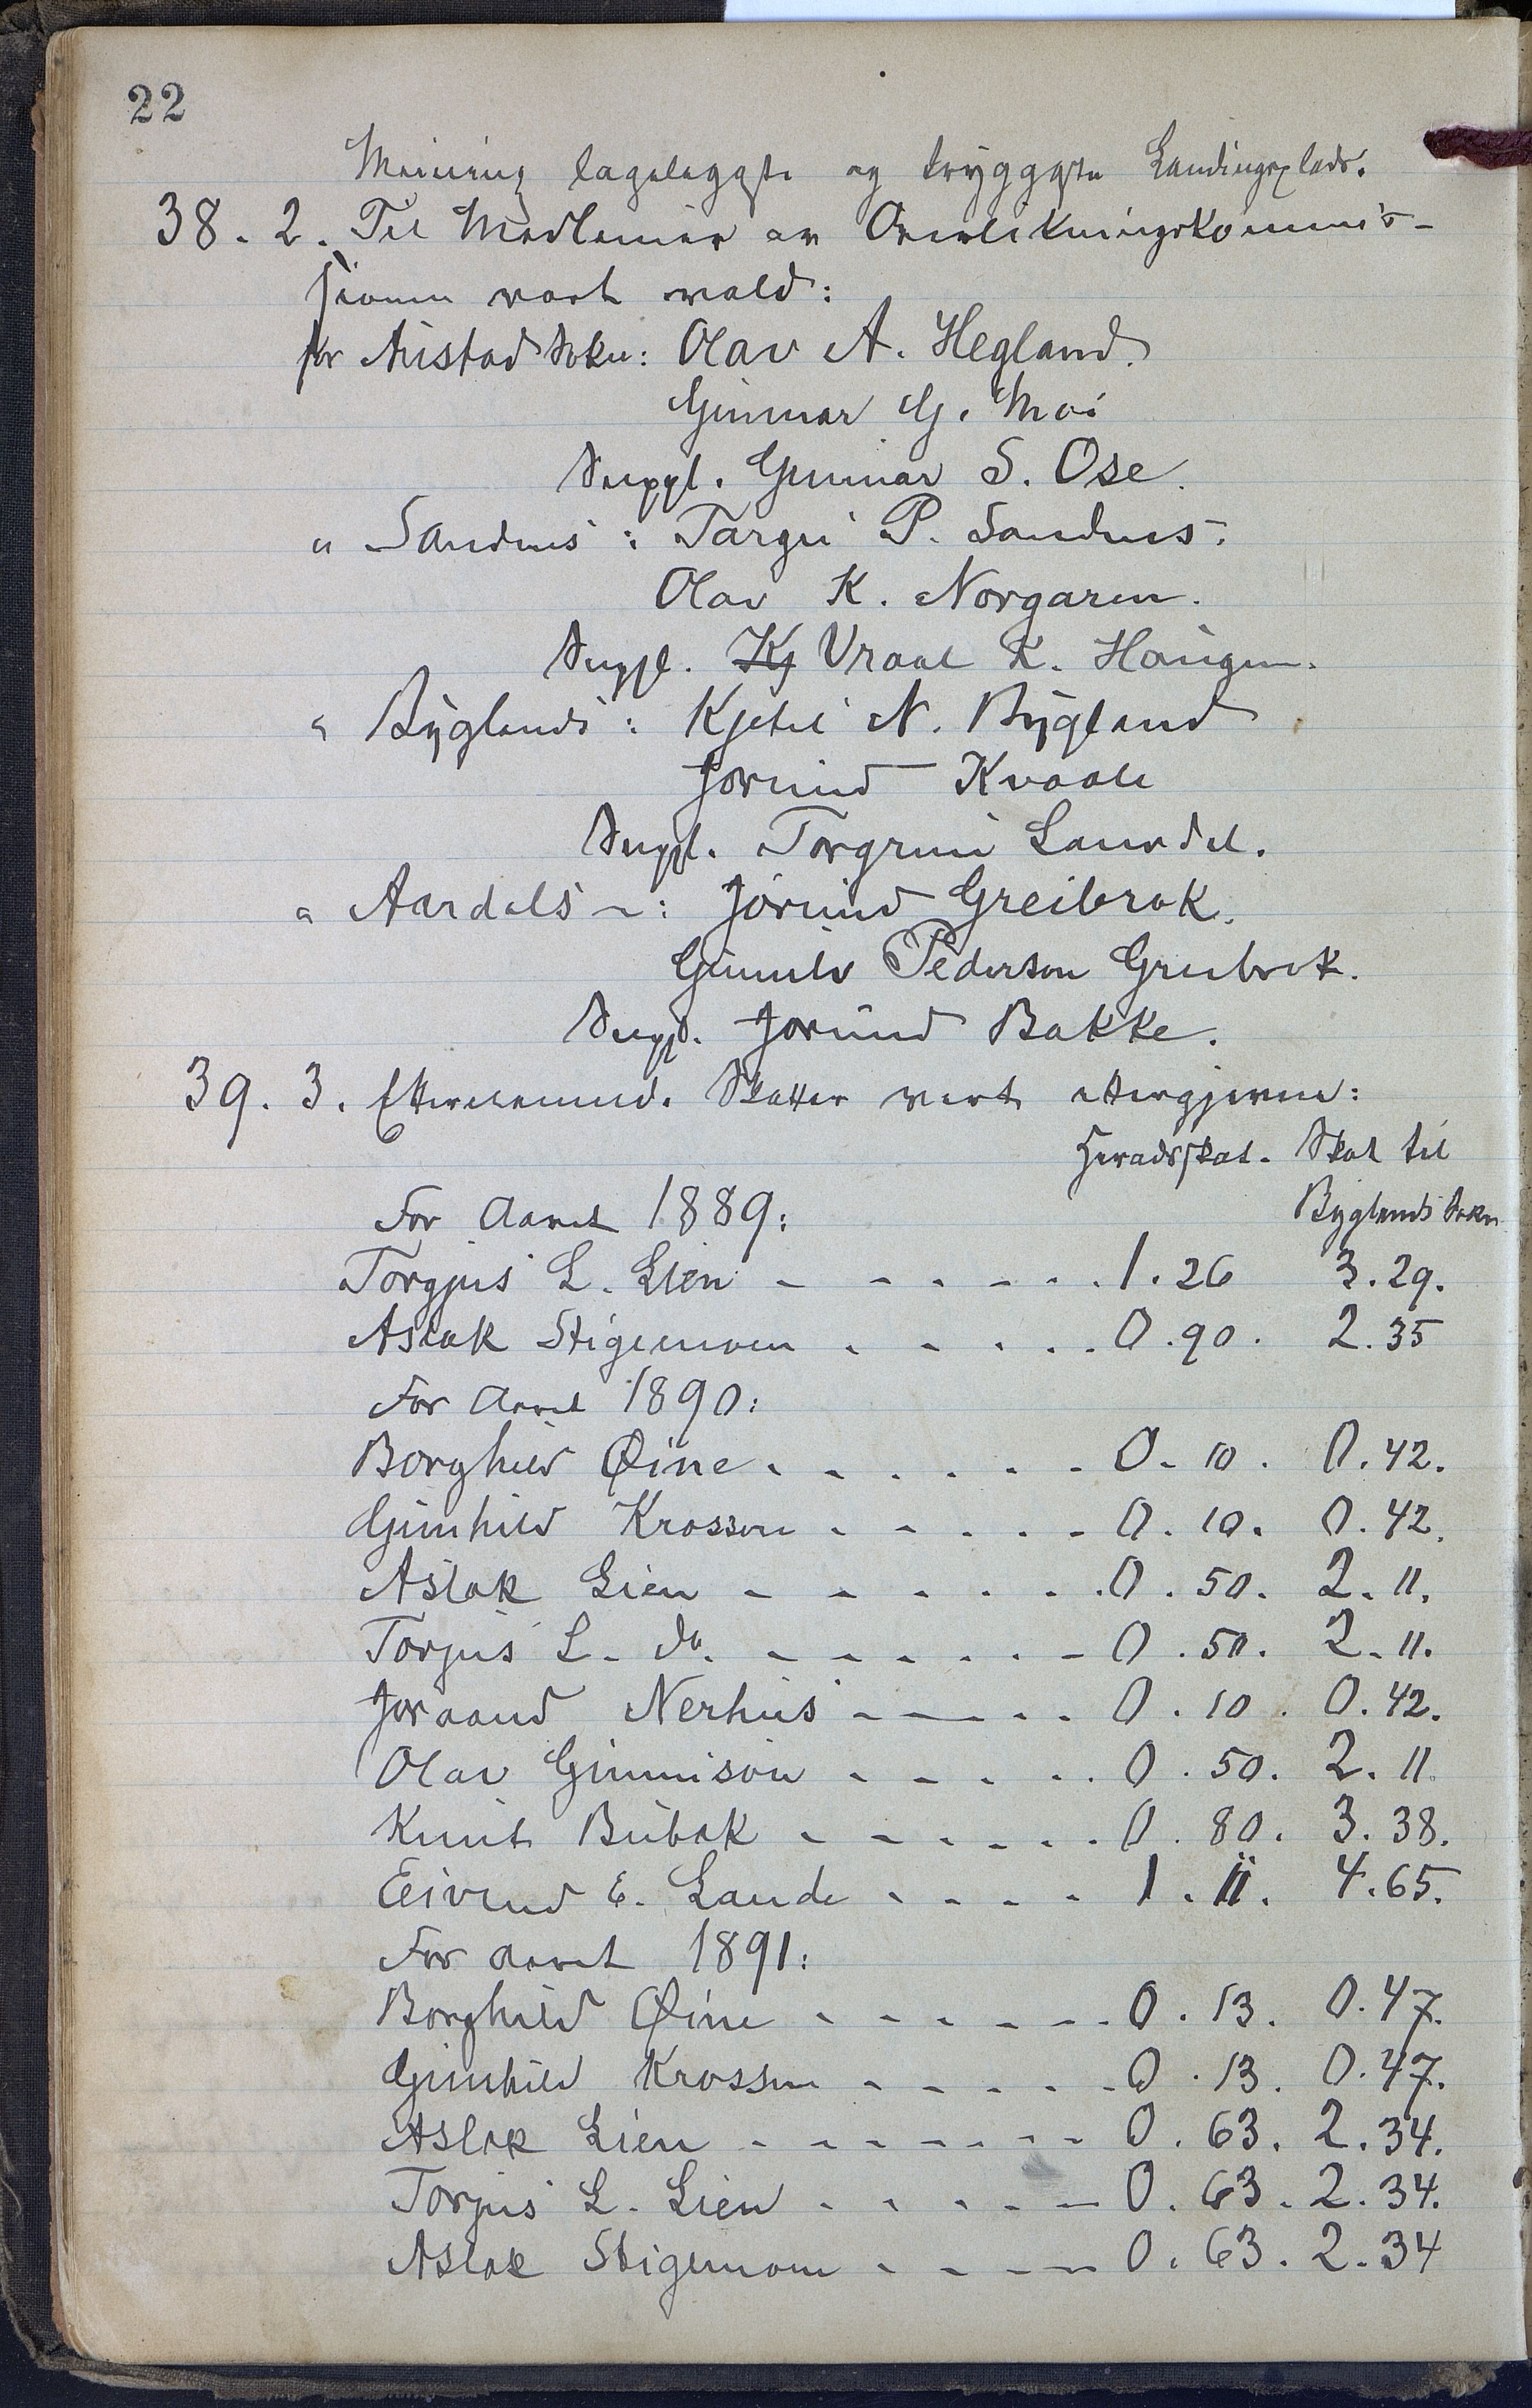 22
Meining lagaleggste og tryggste Landingsplads.
38. 2. Til Medlemer av Overlikningskommis-
sionen vart vald:
for Austad Sokn: Olav A. Hegland.
Gunnar G. Moi
Suppl. Gunnar S. Ose.
" Sandnes : Targei P. Sandnes.
Olav K. Norgaren.
Suppl. Kj Vraal K. Haugen.
" Byglands : Kjetil N. Bygland
Jorund Kvaale
Suppl. Torgrim Laurdal.
" Aardals - : Jorund Greibrok.
Gunnulv Pederson Greibrok.
Suppl. Jorund Bakke.
39. 3. Etternemnde Skatter vart ettergjevne:
Heradsskat. Skat til
For Aaret 1889: Byglands Sokn
Torgjus L. Lien - - - - - . 1.26 3.29.
Aslak Stigemoen . - . . . 0.90. 2.35
For Aaret 1890:
Borghild Øine . - . . - - 0.10. 0.42.
Gunhild Krossen . - . . - 0.10. 0.42.
Aslak Lien - - - - - . 0.50. 2.11.
Torjus L. do. - - - . . - 0.50. 2.11.
Joraand Nerhus - - - . . 0.10. 0.42.
Olav Gunnison . - - . . 0.50. 2.11.
Knut Bubak - - - - . . 0.80. 3.38.
Eivind E. Lande . . . - 1.11. 4.65.
For Aaret 1891:
Borghild Øine - - - - - . 0.13. 0.47.
Gunhild Krossen - - - . . 0.13. 0.47.
Aslak Lien - - - - - - 0.63. 2.34.
Torjus L. Lien . . - . - 0.63. 2.34.
Aslak Stigemoen . - - - 0.63. 2.34